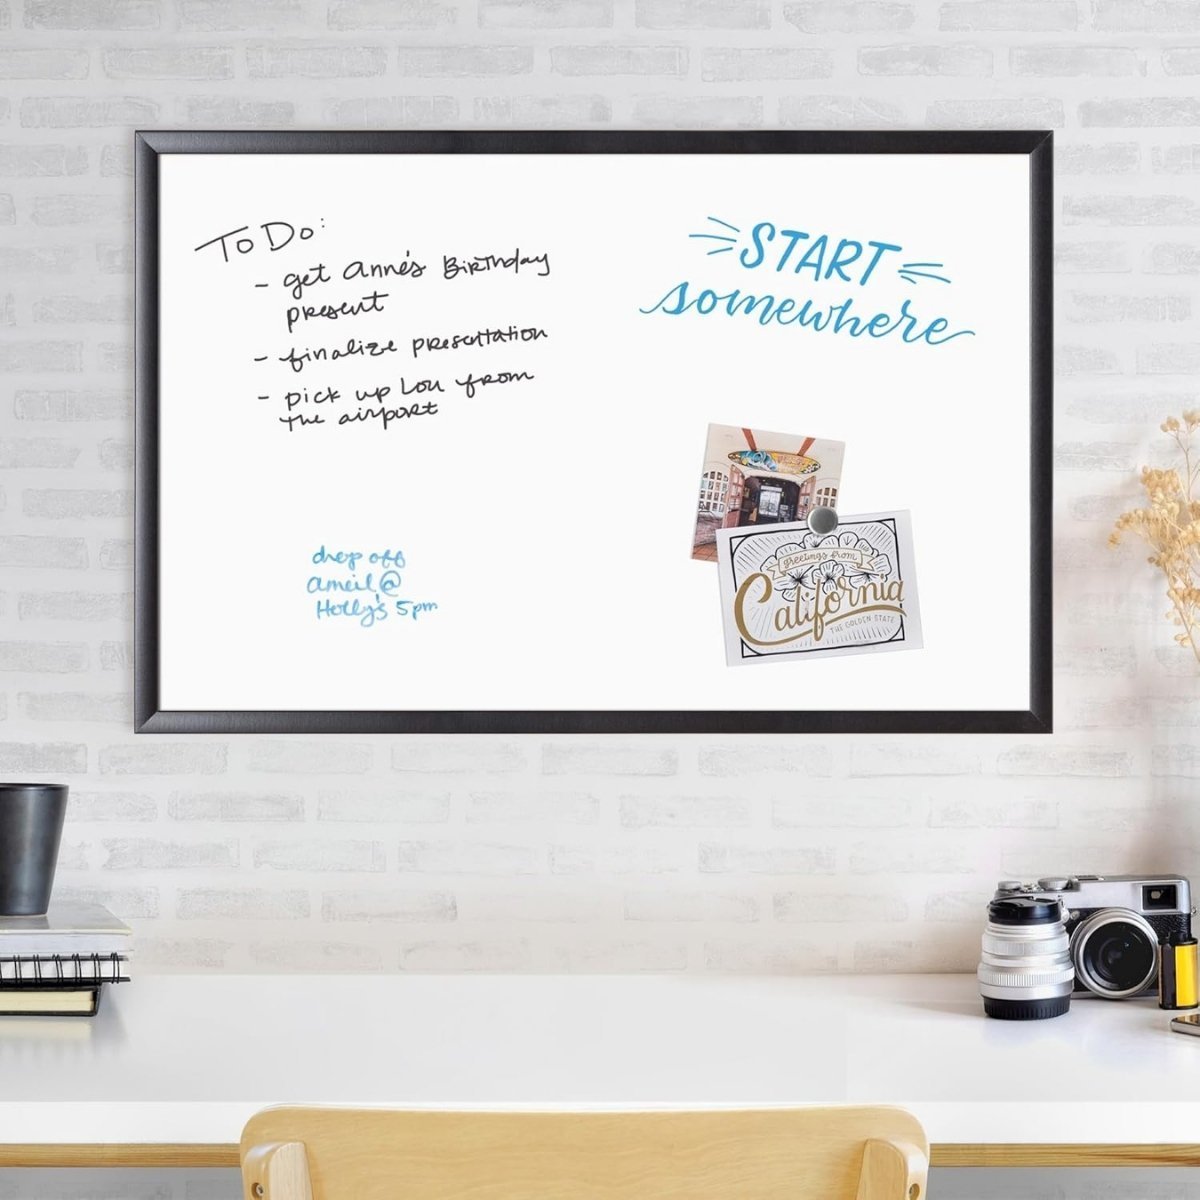 To Do:
- get Anne's Birthday
present
- finalize presentation
- pick up Lou from
the airport
START
somewhere
drop off
Ameil @
Holly's 5pm
greetings from
California
THE GOLDEN STATE